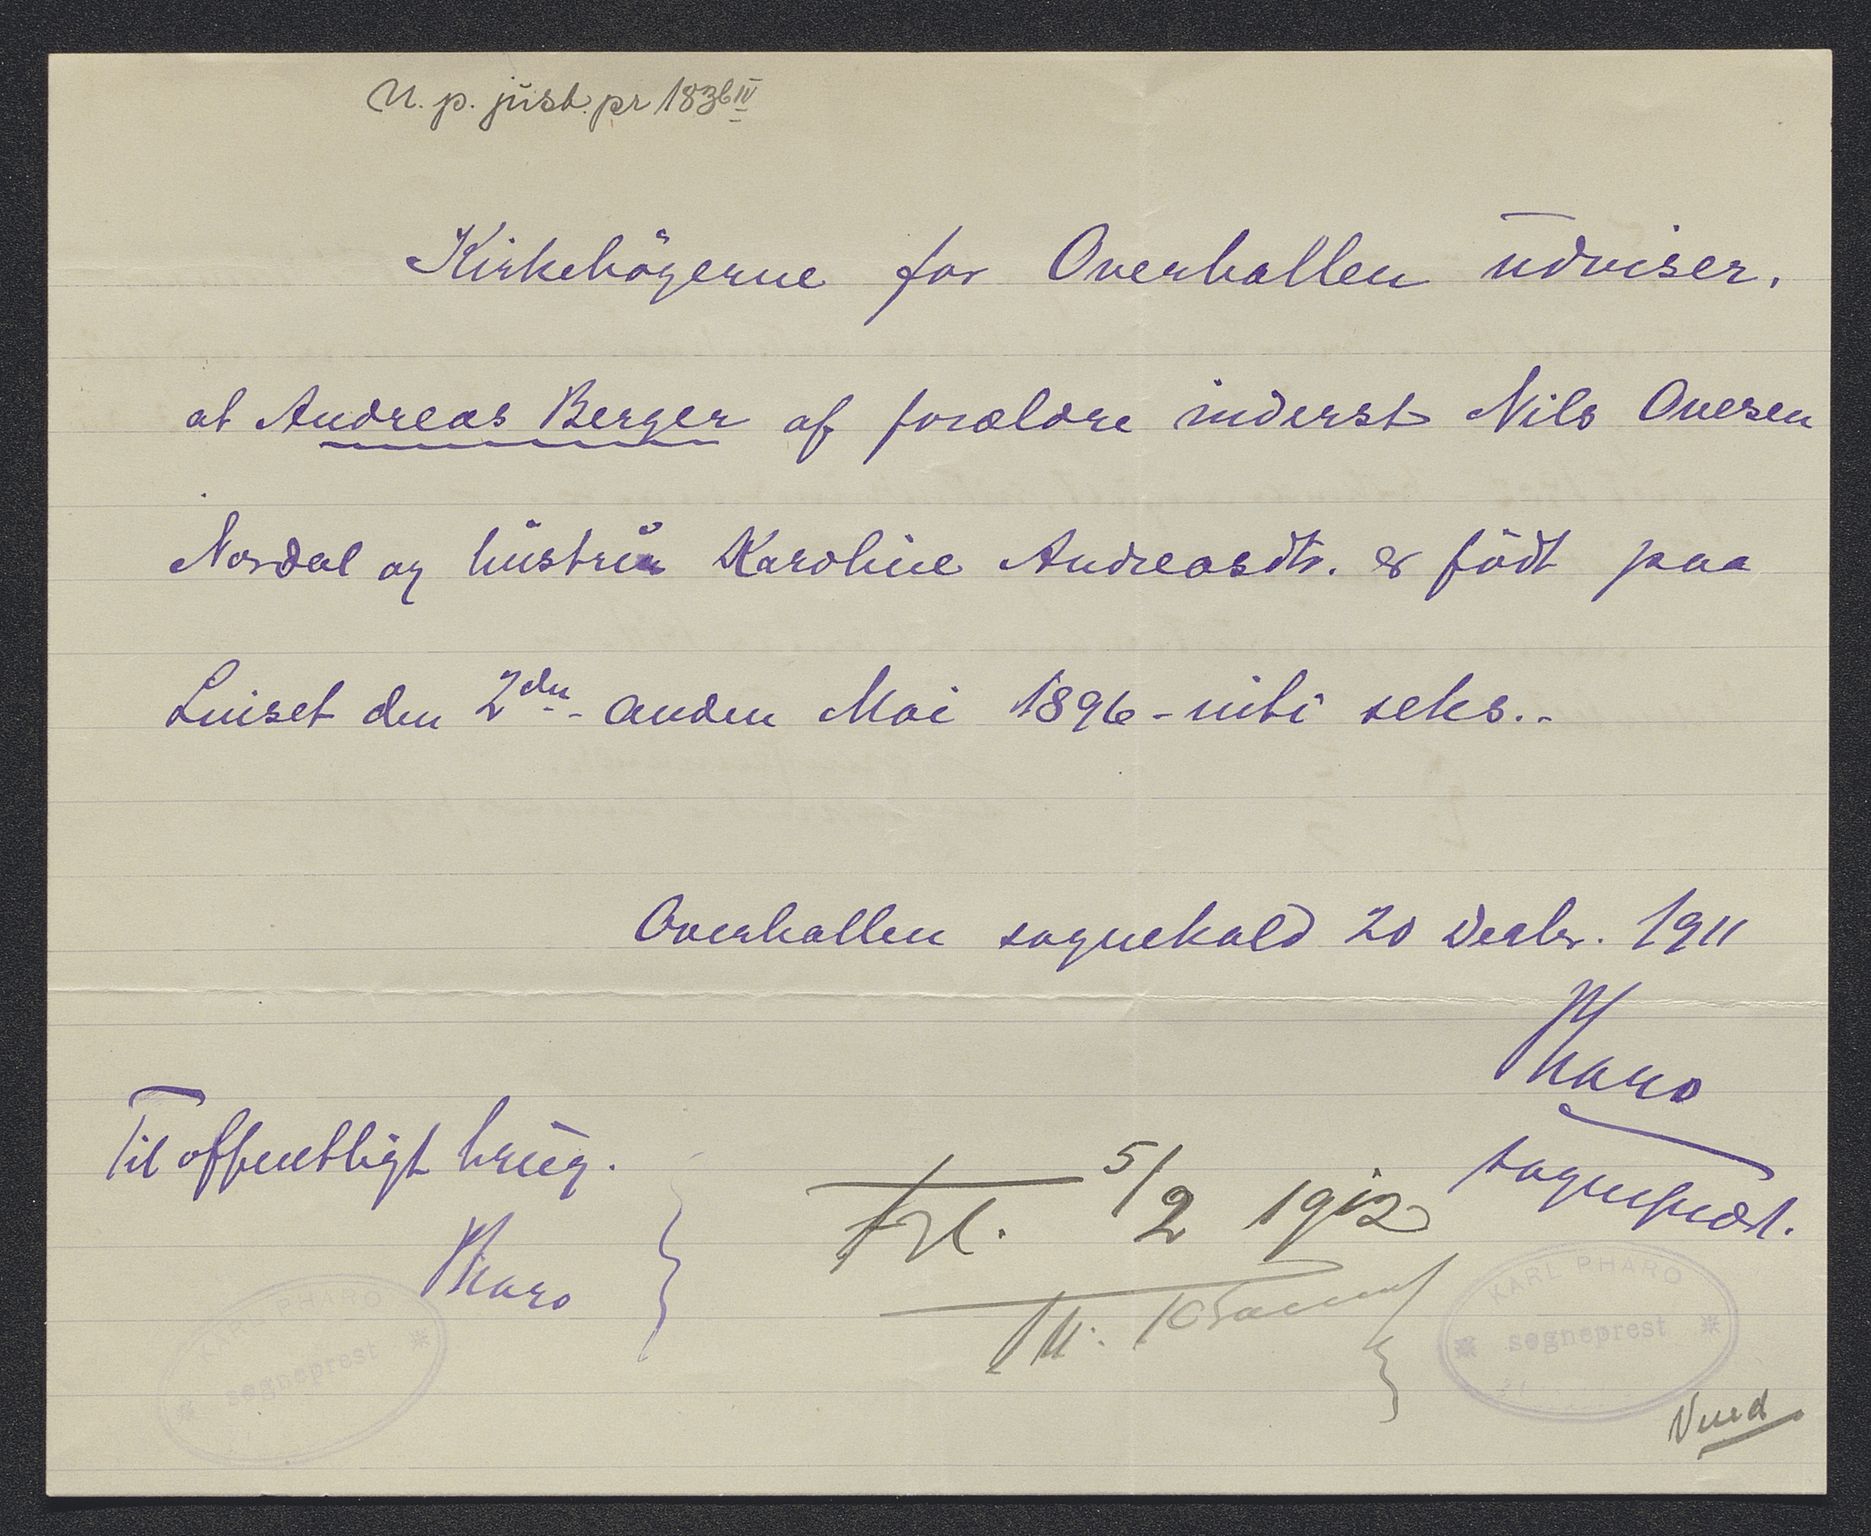 N. p. just. pr 1836 IV
Kirkebögerne for Overhallen udviser,
at Andreas Berger af forældre inderst Nils Ovesen
Nordal og hustru Karoline Andreasdtr. er födt paa
Liuset den 2den - anden Mai 1896 - niti seks..
Overhallen sognekald 20 Decbr. 1911
Pharo
sogneprest.
Til offentligt brug.
Pharo
5/2 1912
KARL PHARO
sogneprest
KARL PHARO
sogneprest
Vend